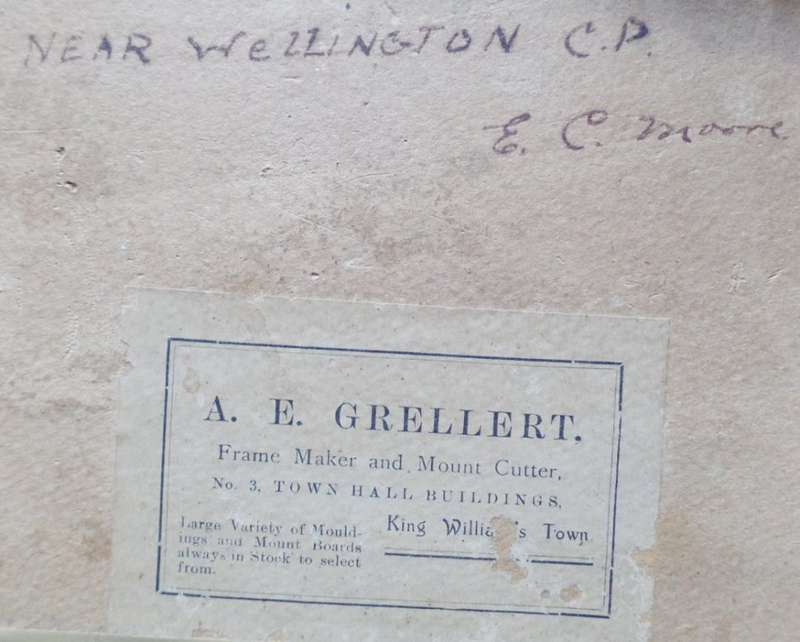 NEAR WELLINGTON C.P.
E. C. Moore
A. E. GRELLERT,
Frame Maker and Mount Cutter,
No. 3, TOWN HALL BUILDINGS,
King Willia 's Town
Large Variety of Mould-
ings and Mount Boards
always in Stock to select
from.